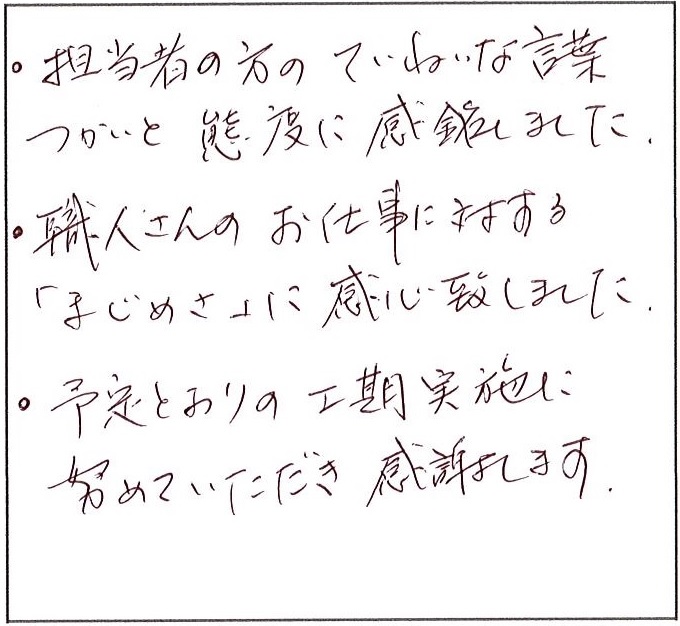 。担当者の方のていねいな言葉
つかいと態度に感銘しました.
・職人さんのお仕事に対する
「まじめさ」に感心致しました.
。予定とおりの工期実施に
努めていただき感謝します.